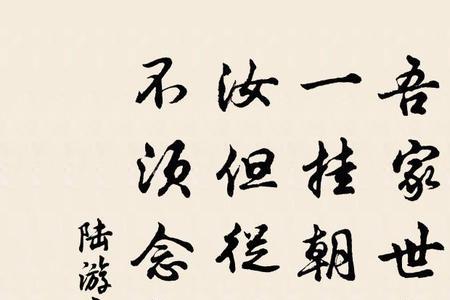 吾家世
一挂朝
汝但從
不须念
陆游